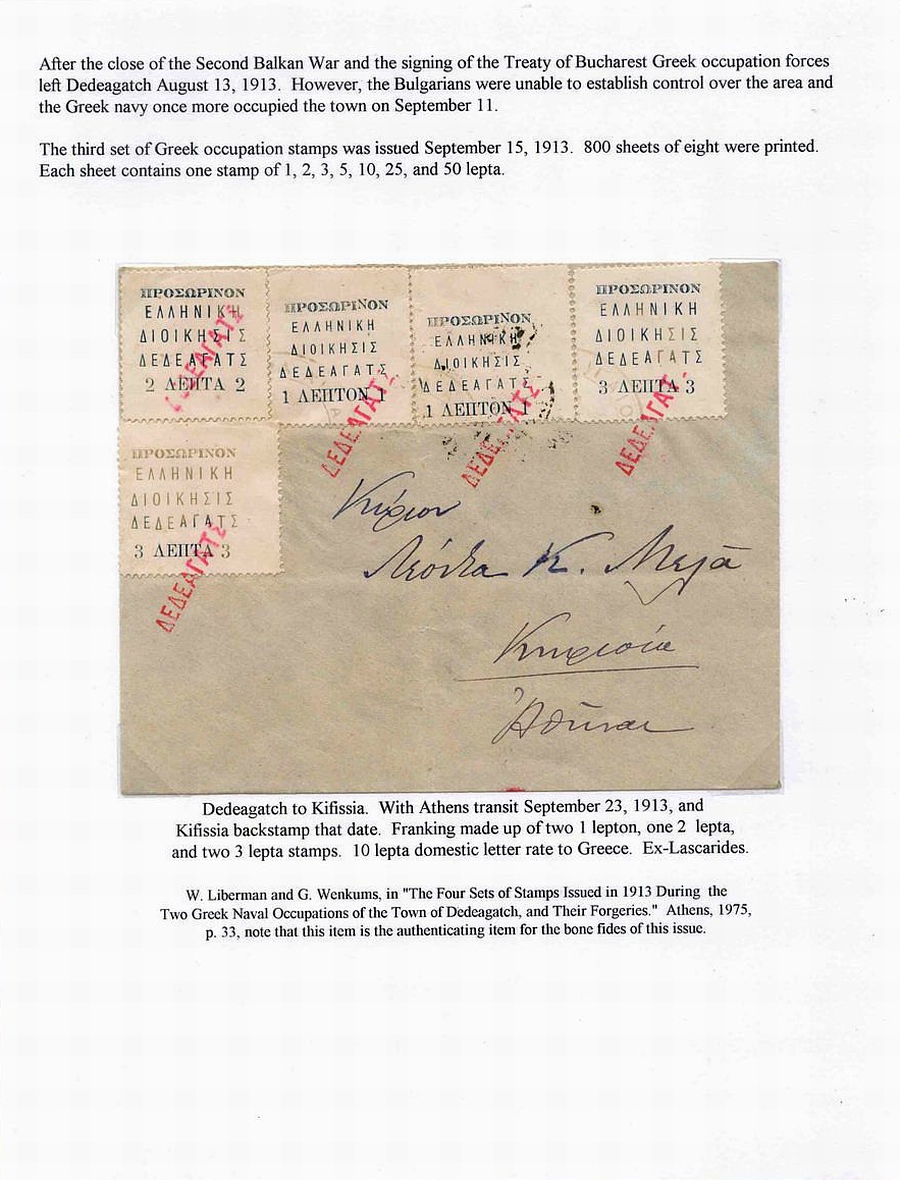 After the close of the Second Balkan War and the signing of the Treaty of Bucharest Greek occupation forces
left Dedeagatch August 13, 1913. However, the Bulgarians were unable to establish control over the area and
the Greek navy once more occupied the town on September 11.
The third set of Greek occupation stamps was issued September 15, 1913. 800 sheets of eight were printed.
Each sheet contains one stamp of 1, 2, 3, 5, 10, 25, and 50 lepta.
ΠΡΟΣΩΡΙΝΟΝ
ΕΛΛΗΝΙΚΗ
ΔΙΟΙΚΗΣΙΣ
ΔΕΔΕΑΓΑΤΣ
2 ΛΕΠΤΑ 2
ΔΕΔΕΑΓΑΤΣ
ΠΡΟΣΩΡΙΝΟΝ
ΕΛΛΗΝΙΚΗ
ΔΙΟΙΚΗΣΙΣ
ΔΕΔΕΑΓΑΤΣ
1 ΛΕΠΤΟΝ 1
ΔΕΔΕΑΓΑΤΣ
ΠΡΟΣΩΡΙΝΟΝ
ΕΛΛΗΝΙΚΗ
ΔΙΟΙΚΗΣΙΣ
ΔΕΔΕΑΓΑΤΣ
1 ΛΕΠΤΟΝ 1
ΔΕΔΕΑΓΑΤΣ
ΠΡΟΣΩΡΙΝΟΝ
ΕΛΛΗΝΙΚΗ
ΔΙΟΙΚΗΣΙΣ
ΔΕΔΕΑΓΑΤΣ
3 ΛΕΠΤΑ 3
ΔΕΔΕΑΓΑΤΣ
ΠΡΟΣΩΡΙΝΟΝ
ΕΛΛΗΝΙΚΗ
ΔΙΟΙΚΗΣΙΣ
ΔΕΔΕΑΓΑΤΣ
3 ΛΕΠΤΑ 3
ΔΕΔΕΑΓΑΤΣ
Κύριον
Λέοντα Κ. Μελᾶ
Κηφισία
Ἀθῆναι
Dedeagatch to Kifissia. With Athens transit September 23, 1913, and
Kifissia backstamp that date. Franking made up of two 1 lepton, one 2 lepta,
and two 3 lepta stamps. 10 lepta domestic letter rate to Greece. Ex-Lascarides.
W. Liberman and G. Wenkums, in "The Four Sets of Stamps Issued in 1913 During the
Two Greek Naval Occupations of the Town of Dedeagatch, and Their Forgeries." Athens, 1975,
p. 33, note that this item is the authenticating item for the bone fides of this issue.